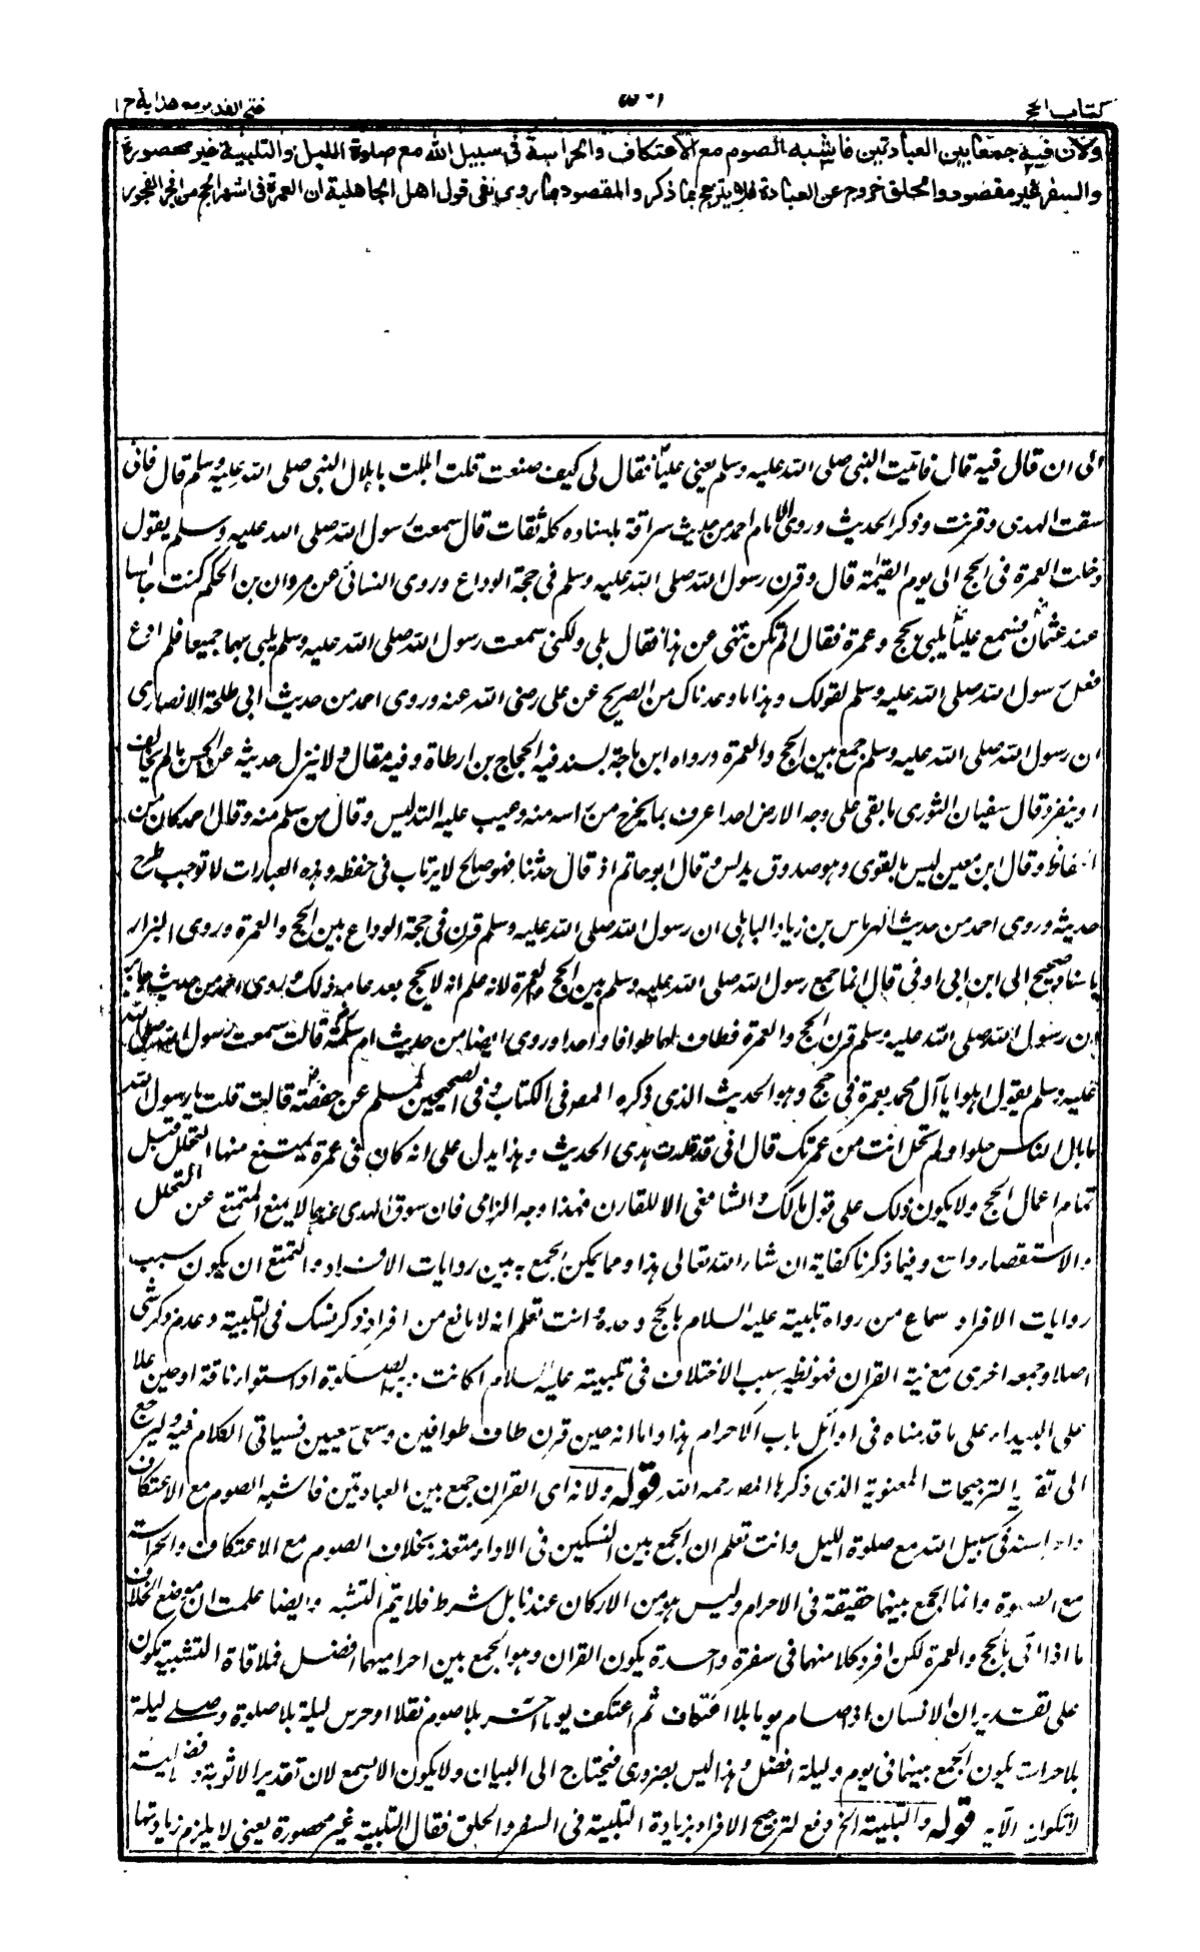 كتاب الحج
فتح القدير مع هداية ج ١
ولان فيه جمعا بين العبادتين فاشبه الصوم مع الاعتكاف والحراسة فى سبيل الله مع صلوة الليل والتلبية غير محصورة
والسفر غير مقصود والحلق خروج عن العبادة فلا يترجح بما ذكر والمقصود بما روى نفى قول اهل الجاهلية ان العمرة فى اشهر الحج من افجر الفجور
الى ان قال فيه قال فاتيت النبى صلى الله عليه وسلم يعنى عليا فقال لى كيف صنعت قلت اهللت باهلال النبى صلى الله عليه وسلم قال فانى
سقت الهدى وقرنت وذكر الحديث وروى الامام احمد من حديث سراقة باسناد كله ثقات قال سمعت رسول الله صلى الله عليه وسلم يقول
دخلت العمرة فى الحج الى يوم القيمة قال وقرن رسول الله صلى الله عليه وسلم فى حجة الوداع وروى النسائى عن مروان بن الحكم كنت جالسا
عند عثمان فسمع عليا يلبى بحج وعمرة فقال الم تكن تنهى عن هذا فقال بلى ولكنى سمعت رسول الله صلى الله عليه وسلم يلبى بهما جميعا فلم ادع
فعل رسول الله صلى الله عليه وسلم لقولك وهذا ما وعدناك من الصريح عن على رضى الله عنه وروى احمد من حديث ابى طلحة الانصارى
ان رسول الله صلى الله عليه وسلم جمع بين الحج والعمرة ورواه ابن ماجة بسند فيه الحجاج بن ارطاة وفيه مقال ولا ينزل حديثه عن الحسن ما لم يخالف
او ينفرد قال سفيان الثورى ما بقى على وجه الارض احد اعرف بما يخرج من راسه منه وعيب عليه التدليس وقال من سلم منه وقال احمد كان من
الحفاظ وقال ابن معين ليس بالقوى وهو صدوق يدلس وقال ابو حاتم اذ قال حدثنا فهو صالح لا يرتاب فى حفظه وهذه العبارات لا توجب طرح
حديثه وروى احمد من حديث الهرماس بن زياد الباهلى ان رسول الله صلى الله عليه وسلم قرن فى حجة الوداع بين الحج والعمرة وروى البزار
باسناد صحيح الى ابن ابى اوفى قال انما جمع رسول الله صلى الله عليه وسلم بين الحج والعمرة لانه علم انه لا يحج بعد عامه ذلك وروى احمد من حديث جابر
ان رسول الله صلى الله عليه وسلم قرن الحج والعمرة فطاف لهما طوافا واحدا وروى ايضا من حديث ام سلمة قالت سمعت رسول الله صلى الله
عليه وسلم يقول اهلوا يا آل محمد بعمرة فى حج وهو الحديث الذى ذكره المصـ فى الكتاب وفى الصحيحين لمسلم عن حفصة قالت قلت يا رسول الله
ما بال الناس حلوا ولم تحل انت من عمرتك قال انى قد قلدت هدى الحديث وهذا يدل على انه كان فى عمرة يمتنع منها التحلل قبل
تمام اعمال الحج ولا يكون ذلك على قول مالك والشافعى الا للقارن فهذا وجه الزامى فان سوق الهدى عندهما لا يمنع المتمتع عن التحلل
والاستقصاء واسع وفيما ذكرنا كفاية ان شاء الله تعالى هذا ومما يمكن الجمع به بين روايات الافراد والتمتع ان يكون سبب
روايات الافراد سماع من رواه تلبيته عليه السلام بالحج وحده وانت تعلم انه لا مانع من افراد ذكر نسك فى التلبية وعدم ذكر شئ
اصلا وجمعه اخرى مع نية القران فهو نظير سبب الاختلاف فى تلبيته عليه السلام اكانت دبر الصلوة او استواء ناقته او حين علا
على البيداء على ما قدمناه فى اوائل باب الاحرام هذا واما انه حين قرن طاف طوافين وسعى سعيين فسياتى الكلام فيه ولنرجع
الى تقرير الترجيحات المعنوية الذى ذكرها المصـ رحمه الله قوله ولانه اى القران جمع بين العبادتين فاشبه الصوم مع الاعتكاف
والحراسة فى سبيل الله مع صلوة الليل وانت تعلم ان الجمع بين النسكين فى الاداء متعذر بخلاف الصوم مع الاعتكاف والحراسة
مع الصلوة وانما الجمع بينهما حقيقة فى الاحرام وليس هو من الاركان عندنا بل شرط فلا يتم التشبه وايضا علمت ان موضع الخلاف
ما اذا اتى بالحج والعمرة لكن افرد كلا منهما فى سفرة واحدة يكون القران وهو الجمع بين احراميهما افضل فملاقاة التشبيه يكون
على تقدير ان الانسان اذا صام يوما بلا اعتكاف ثم اعتكف يوما آخر بلا صوم نفلا او حرس ليلة بلا صلوة وصلى ليلة
بلا حراسة يكون الجمع بينهما فى يوم وليلة افضل وهذا ليس بضرورى فيحتاج الى البيان ولا يكون الا بسمع لان تقدير الاثوبة والافضلية
لا يكون الا به قوله والتلبية الخ دفع لترجيح الافراد بزيادة التلبية فى السفر والحلق فقال التلبية غير محصورة يعنى لا يلزم زيادتها